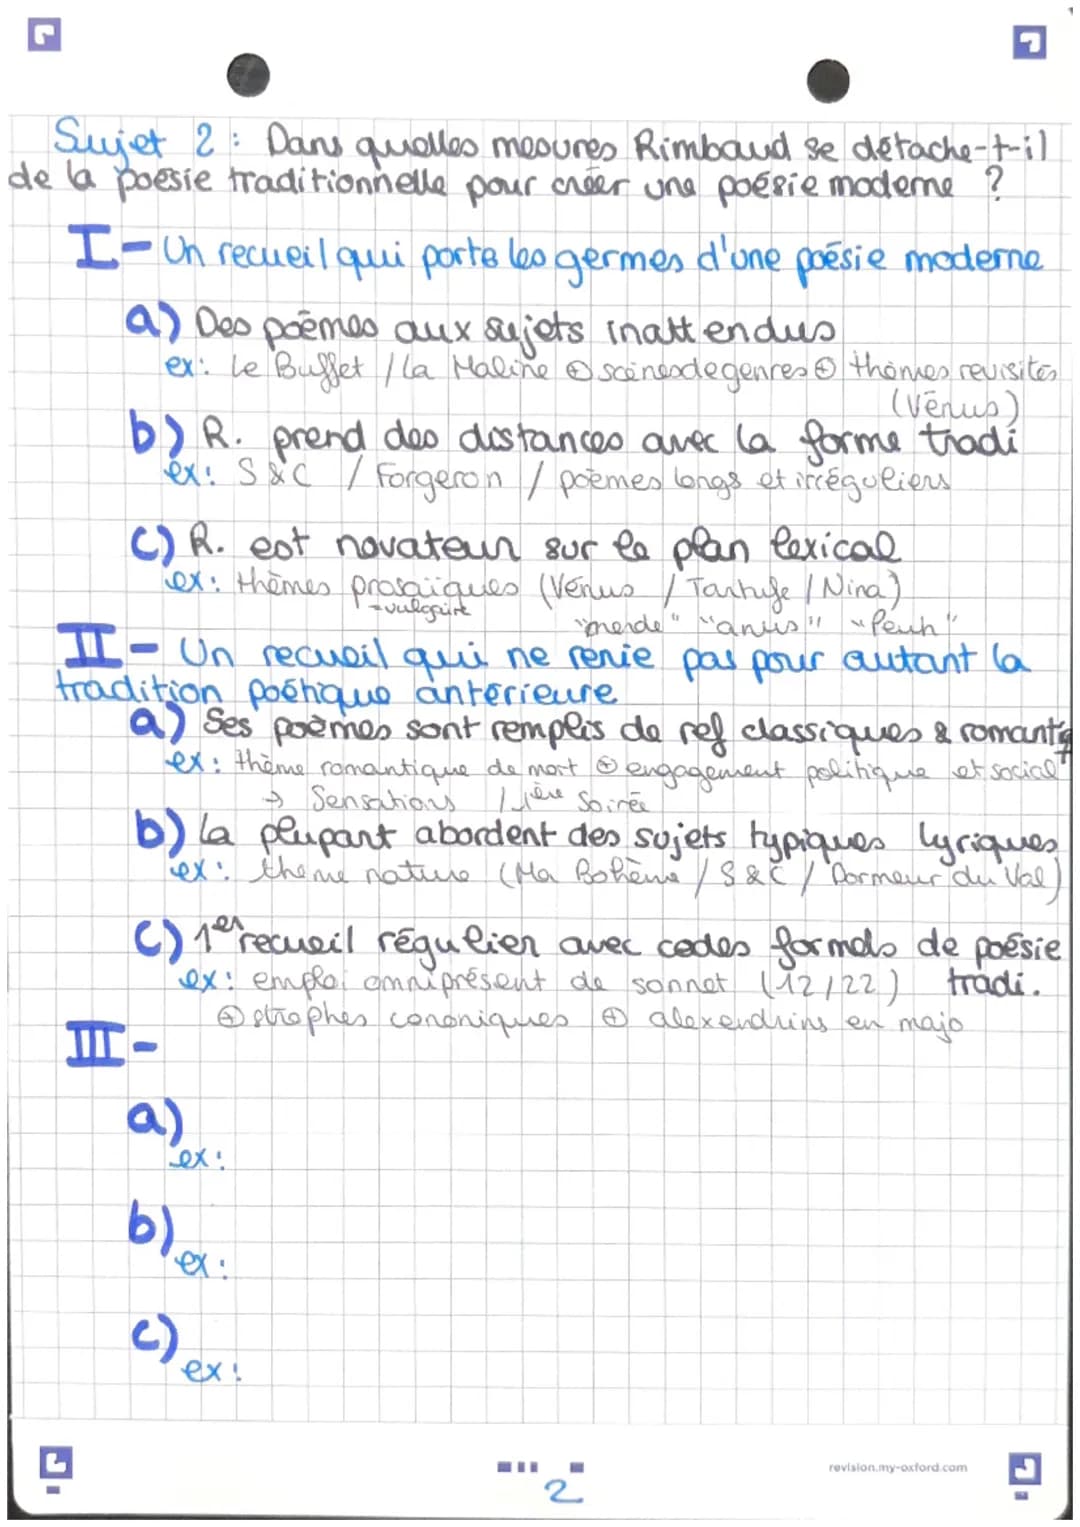 Sujet 2 : Dans quelles mesures Rimbaud se détache-t-il
de la poésie traditionnelle pour créer une poésie moderne ?
I - Un recueil qui porte les germes d'une poésie moderne
a) Des poèmes aux sujets inattendus
ex : Le Buffet / La Maline ⊕ scènes de genres ⊕ thèmes revisités
(Vénus)
b) R. prend des distances avec la forme tradi
ex : S&C / Forgeron / poèmes longs et irréguliers
c) R. est novateur sur le plan lexical
ex : thèmes prosaïques (Vénus / Tartufe / Nina)
=vulgaire "merde" "anus" "Peuh"
II - Un recueil qui ne renie pas pour autant la
tradition poétique antérieure
a) Ses poèmes sont remplis de ref classiques & romantq
ex : thème romantique de mort ⊕ engagement politique et social
→ Sensations / 1ère Soirée
b) La plupart abordent des sujets typiques lyriques
ex : theme nature (Ma Bohème / S&C / Dormeur du Val)
c) 1er recueil régulier avec codes formels de poésie
ex : emploi omniprésent de sonnet (12/22) tradi.
⊕ strophes canoniques ⊕ alexendrins en majo
III -
a)
ex :
b)
ex :
c)
ex :
revision.my-oxford.com
2